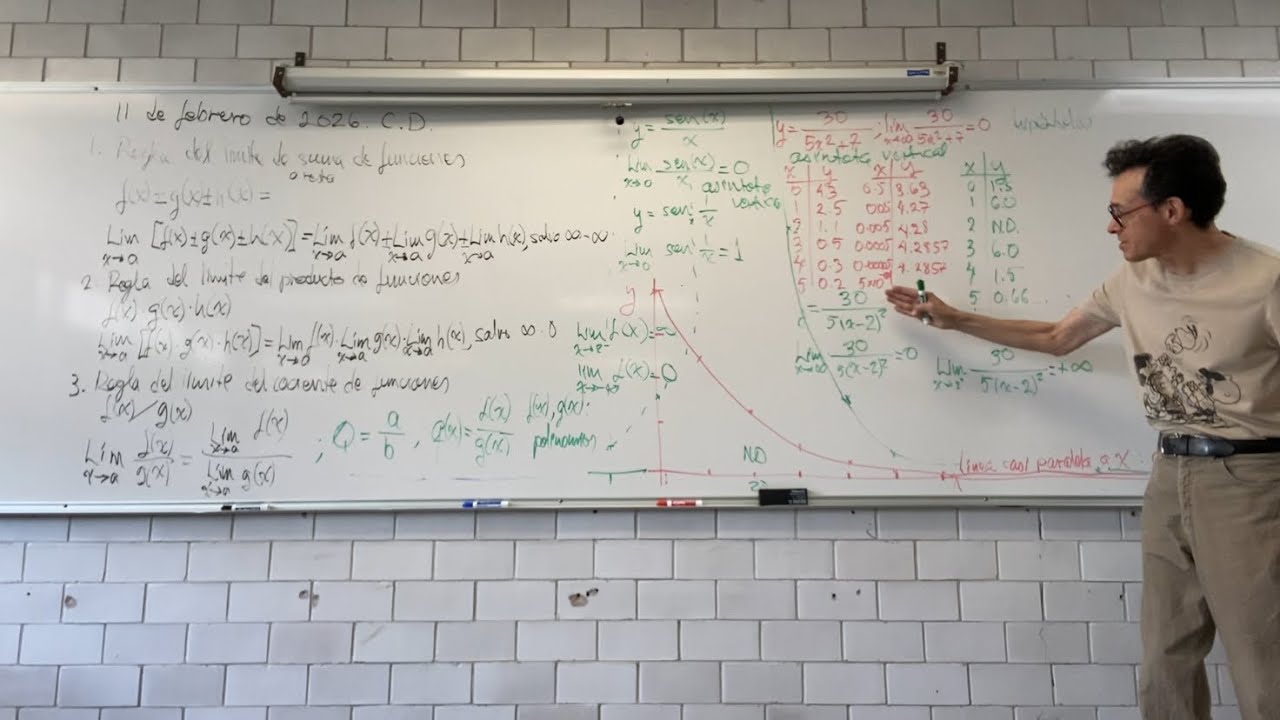 11 de febrero de 2026. C.D.
1. Regla del limite de suma de funciones
o resta
f(x)±g(x)±h(x)=
Lim x→a [f(x)±g(x)±h(x)]=Lim x→a f(x)±Lim x→a g(x)±Lim x→a h(x), salvo ∞-∞
2. Regla del limite del producto de funciones
f(x) g(x)·h(x)
Lim x→a [f(x)·g(x)·h(x)]=Lim x→a f(x)·Lim x→a g(x)·Lim x→a h(x), salvo ∞·0
3. Regla del limite del cociente de funciones
f(x)/g(x)
Lim x→a f(x)/g(x) = Lim x→a f(x) / Lim x→a g(x) ; Q = a/b , Q(x)= f(x)/g(x) f(x), g(x):
polinomios
y = sen(x)/x
Lim x→0 sen(x)/x = 0
asintota
vertical
y = sen 1/x
Lim x→0 sen 1/x = 1
Lim f(x)=∞
Lim f(x)=0
y
y = 30/5x²+7 ; Lim x→∞ 30/5x²+7 = 0
asintota vertical
x y x y
0 4.3 0.5 3.63
1 2.5 0.05 4.27
2 1.1 0.005 4.28
3 0.5 0.0005 4.2857
4 0.3 0.00005 4.2857
5 0.2
x y
0 1.5
1 6.0
2 N.D.
3 6.0
4 1.5
5 0.66...
= 30/5(x-2)²
Lim x→∞ 30/5(x-2)² = 0
Lim x→2 30/5(x-2)² = +∞
N.D
2
linea casi paralela a X